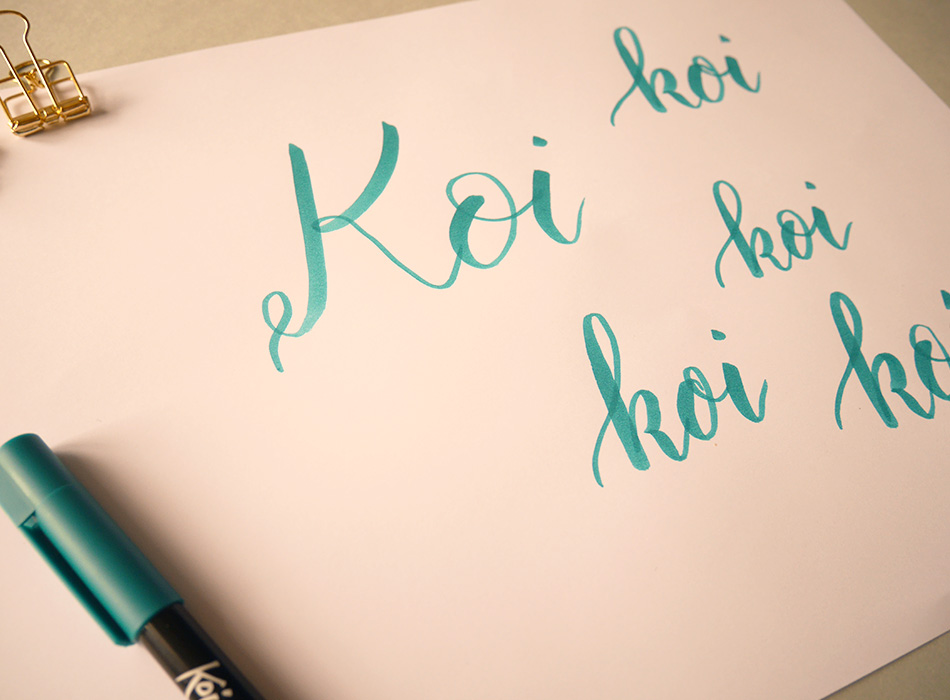 koi
Koi
koi
koi
ko
Koi